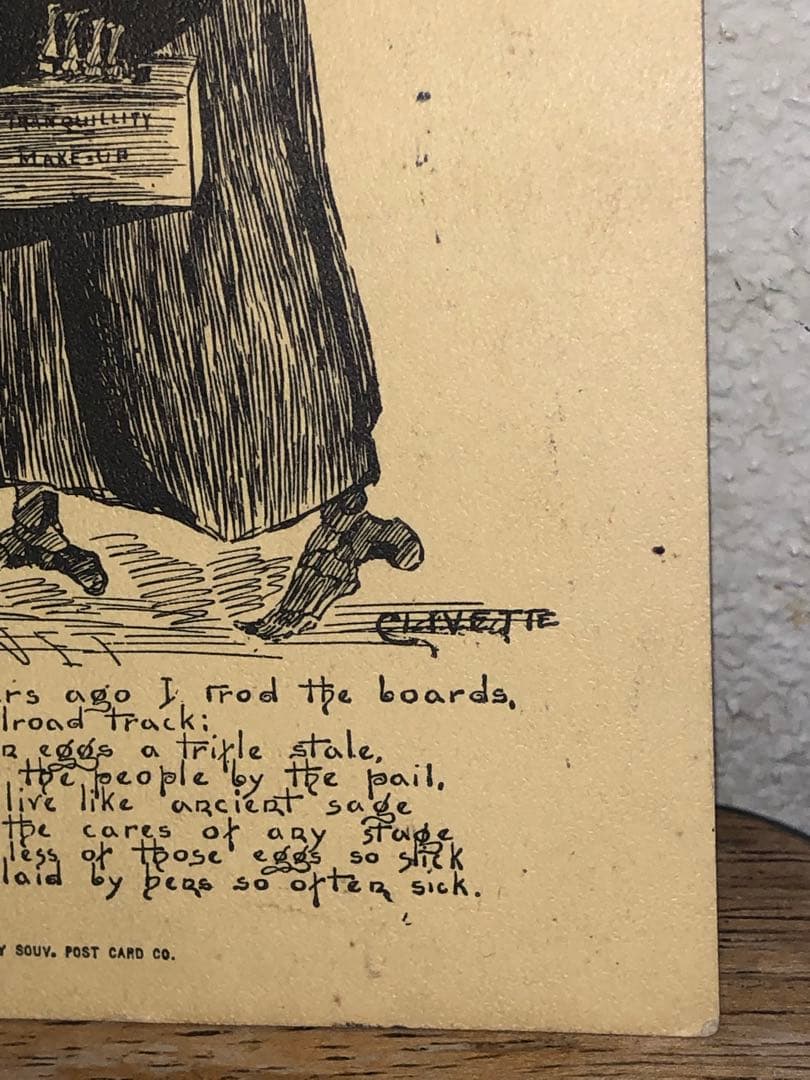 TRANQUILLITY
MAKE-UP
CLAVETTE
rs ago I trod the boards,
lroad track;
n eggs a trifle stale,
the people by the pail,
live like ancient sage
the cares of any stage
less of those eggs so slick
laid by hens so often sick.
Y SOUV. POST CARD CO.